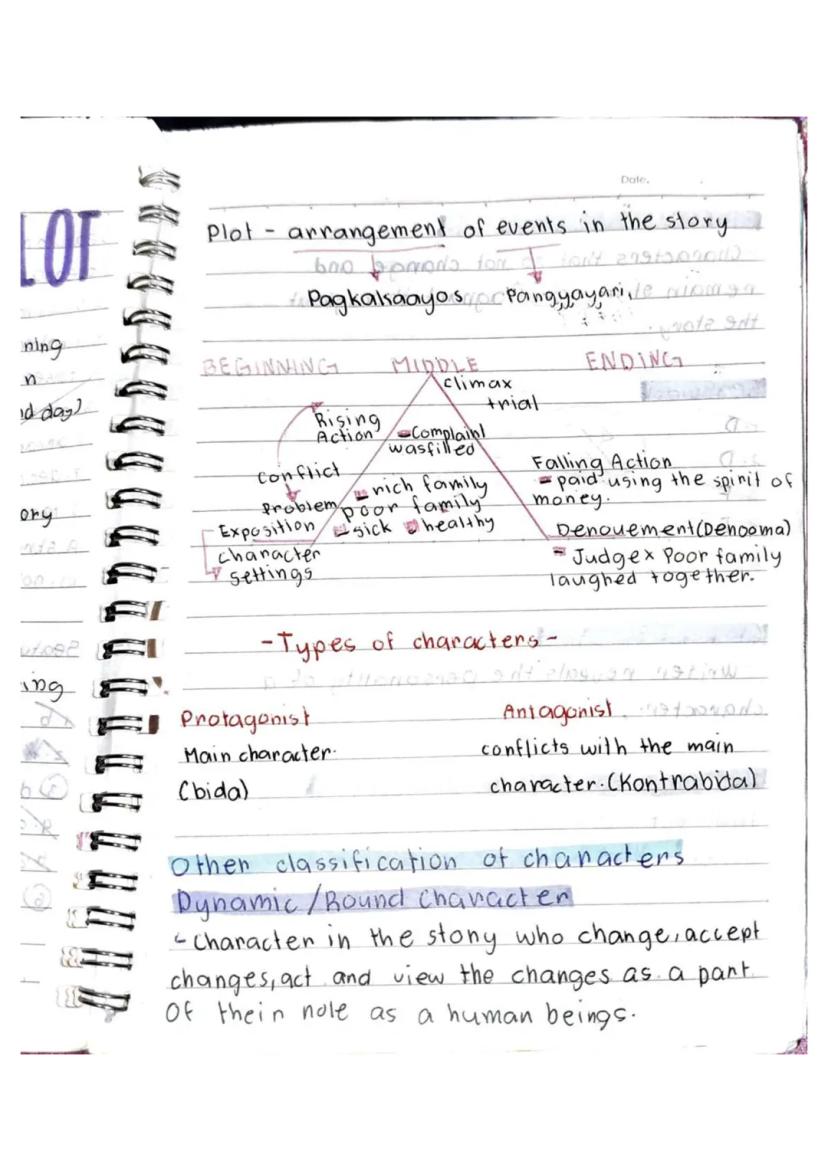 Date.
LOT
Plot - arrangement of events in the story
Pagkakaayos Pangyayari
ning
n
nd day)
ory
ing
BEGINNING MIDDLE ENDING
climax
trial
Rising
Action
- Complaint
wasfilled
Conflict
Problem
- rich family
poor family
- sick - healthy
Exposition
Character
settings
Falling Action
- paid using the spirit of
money.
Denouement(Denooma)
- Judge x Poor family
laughed together.
-Types of characters-
Protagonist
Main character.
(bida)
Antagonist
conflicts with the main
character.(Kontrabida)
Other classification of characters
Dynamic/Round Character
- Character in the story who change, accept
changes, act and view the changes as a part
Of their role as a human beings.